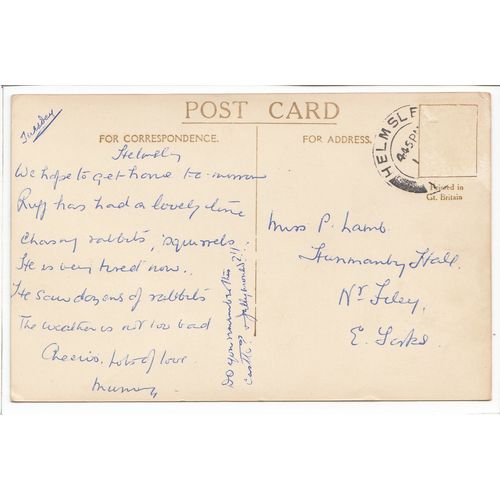 Tuesday
POST CARD
FOR CORRESPONDENCE.
FOR ADDRESS.
HELMSLE
4 45 PM
Printed in
Gt. Britain
Helmsley
We hope to get home to-morrow
Ruff has had a lovely time
chasing rabbits, squirrels.
He is very tired now.
He saw dozens of rabbits
The weather is not too bad
Cheerio. Lots of love.
Mummy
Do you remember this
castle &
Miss P. Lamb.
Hunmanby Hall.
Nr Filey,
E. Yorks.